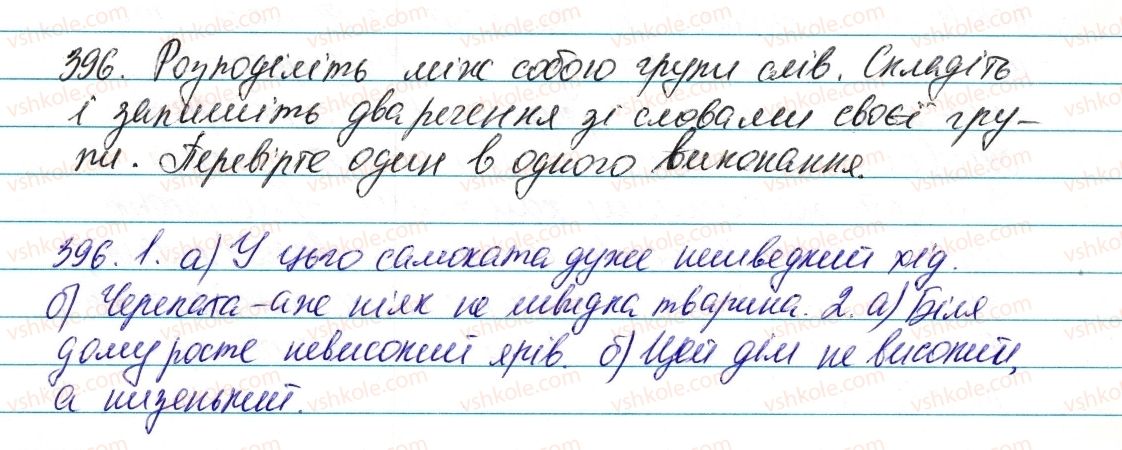 396. Розподіліть між собою групи слів. Складіть
і запишіть два речення зі словами своєї гру-
пи. Перевірте один в одного виконання.
396. 1. а) У цього самоката дуже нешведкий хід.
б) Черепаха - аж ніяк не швидка тварина. 2. а) Біля
дому росте невисокий ярів. б) Цей дім не високий,
а низенький.